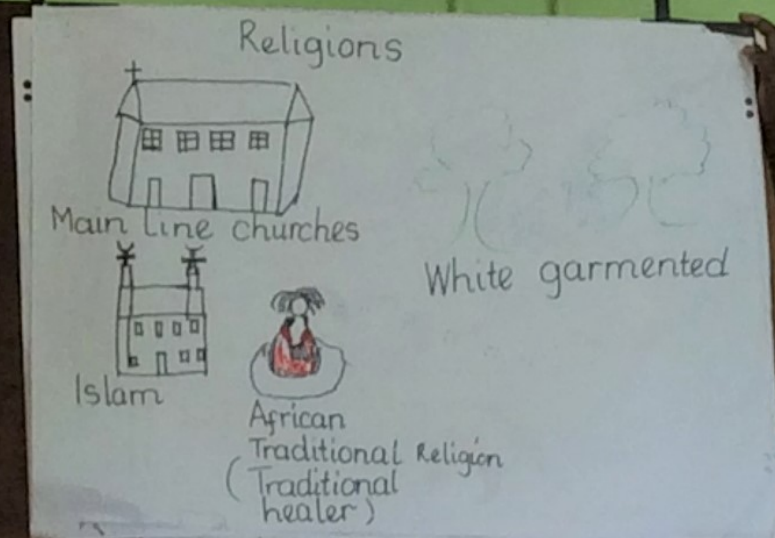 Religions
Main line churches
White garmented
Islam
African
Traditional Religion
(Traditional
healer)